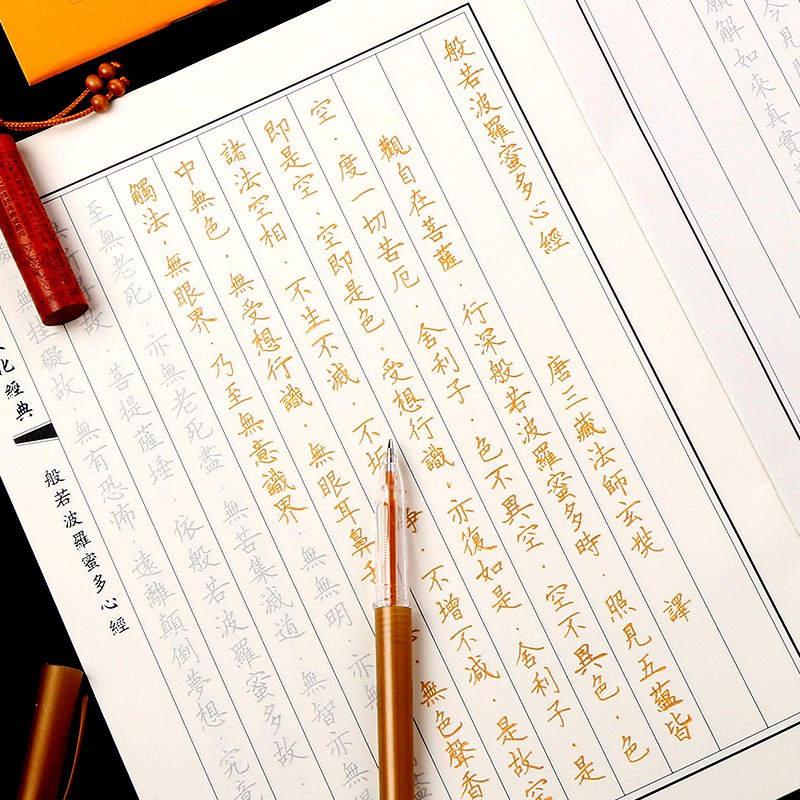 今見
願解如來真實
般若波羅蜜多心經
唐三藏法師玄奘 譯
觀自在菩薩．行深般若波羅蜜多時．照見五蘊皆
空．度一切苦厄．舍利子．色不異空．空不異色．色
即是空．空即是色．受想行識．亦復如是．舍利子．是
諸法空相．不生不滅．不垢 淨．不增不減．是故空
中無色．無受想行識．無眼耳鼻舌 ．無色聲香
觸法．無眼界．乃至無意識界．無無明．亦無 盡
至無老死．亦無老死盡．無苦集滅道．無智亦無
得故．菩提薩埵．依般若波羅蜜多故
礙．無掛礙故．無有恐怖．遠離顛倒夢想．究竟
化經典
般若波羅蜜多心經